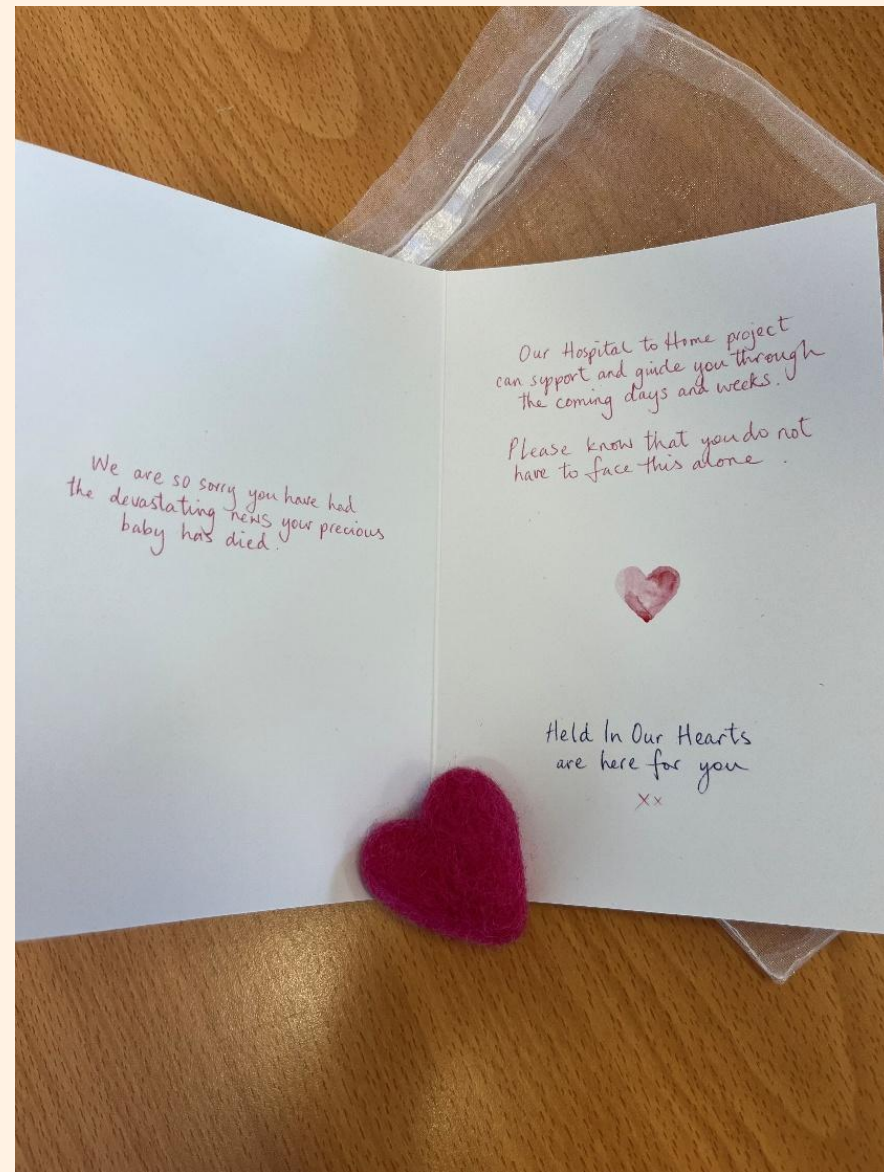 We are so sorry you have had
the devastating news your precious
baby has died.
Our Hospital to Home project
can support and guide you through
the coming days and weeks.
Please know that you do not
have to face this alone.
Held In Our Hearts
are here for you
xx